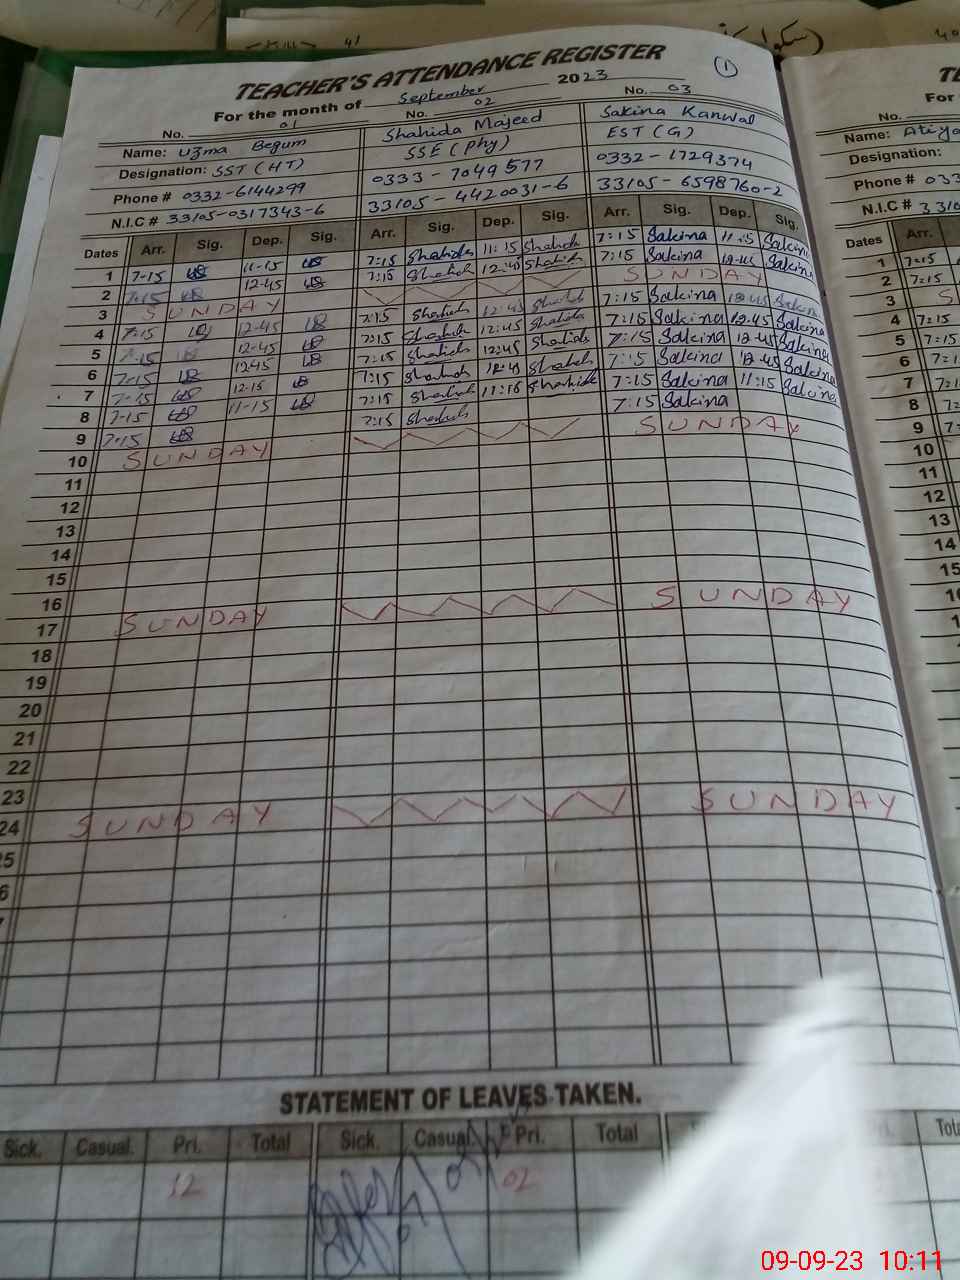 TEACHER'S ATTENDANCE REGISTER
1
For the month of September 2023
No. 01 No. 02 No. 03
Name: Uzma Begum Shahida Majeed Sakina Kanwal
Designation: SST (HT) SSE (Phy) EST (G)
Phone # 0332-6144299 0333-7049577 0332-1729374
N.I.C # 33105-0317343-6 33105-4420031-6 33105-6598760-2
Dates Arr. Sig. Dep. Sig. Arr. Sig. Dep. Sig. Arr. Sig. Dep. Sig.
1 7-15 11-15 7:15 Shahida 11:15 Shahida 7:15 Sakina 11:15 Sakina
2 7-15 12-45 7:15 Shahida 12:45 Shahida 7:15 Sakina 12:45 Sakina
3 SUNDAY SUNDAY
4 7-15 12-45 7:15 Shahida 12:45 Shahida 7:15 Sakina 12:45 Sakina
5 7-15 12-45 7:15 Shahida 12:45 Shahida 7:15 Sakina 12:45 Sakina
6 7-15 12-45 7:15 Shahida 12:45 Shahida 7:15 Sakina 12:45 Sakina
7 7-15 7:15 Shahida Shahida 7:15 Sakina 12:45 Sakina
8 7-15 11-15 7:15 Shahida Shahida 7:15 Sakina 11:15 Sakina
9 7-15 7:15 Shahida 7:15 Sakina
10 SUNDAY SUNDAY
11
12
13
14
15
16
17 SUNDAY SUNDAY
18
19
20
21
22
23
24 SUNDAY SUNDAY
STATEMENT OF LEAVES TAKEN.
Sick. Casual. Pri. Total Sick. Casual. Pri. Total
12 02
For
No.
Name: Atiya
Designation:
Phone # 033
N.I.C # 3310
Dates Arr.
1 7:15
2 7:15
3 S
4 7:15
5 7:15
6
7
8
9
10
11
12
13
14
09-09-23 10:11